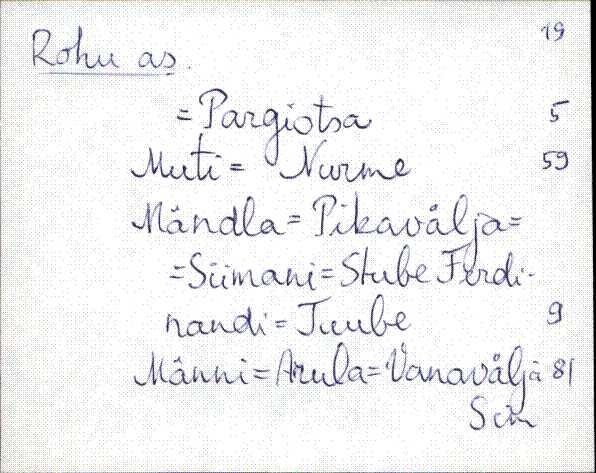 Rohu as. 19
= Pargiotsa 5
Muti = Nurme 59
Mändla = Pikavälja =
= Siimani = Stube Ferdi-
nandi = Tuube 9
Männi = Arula = Vanavälja 81